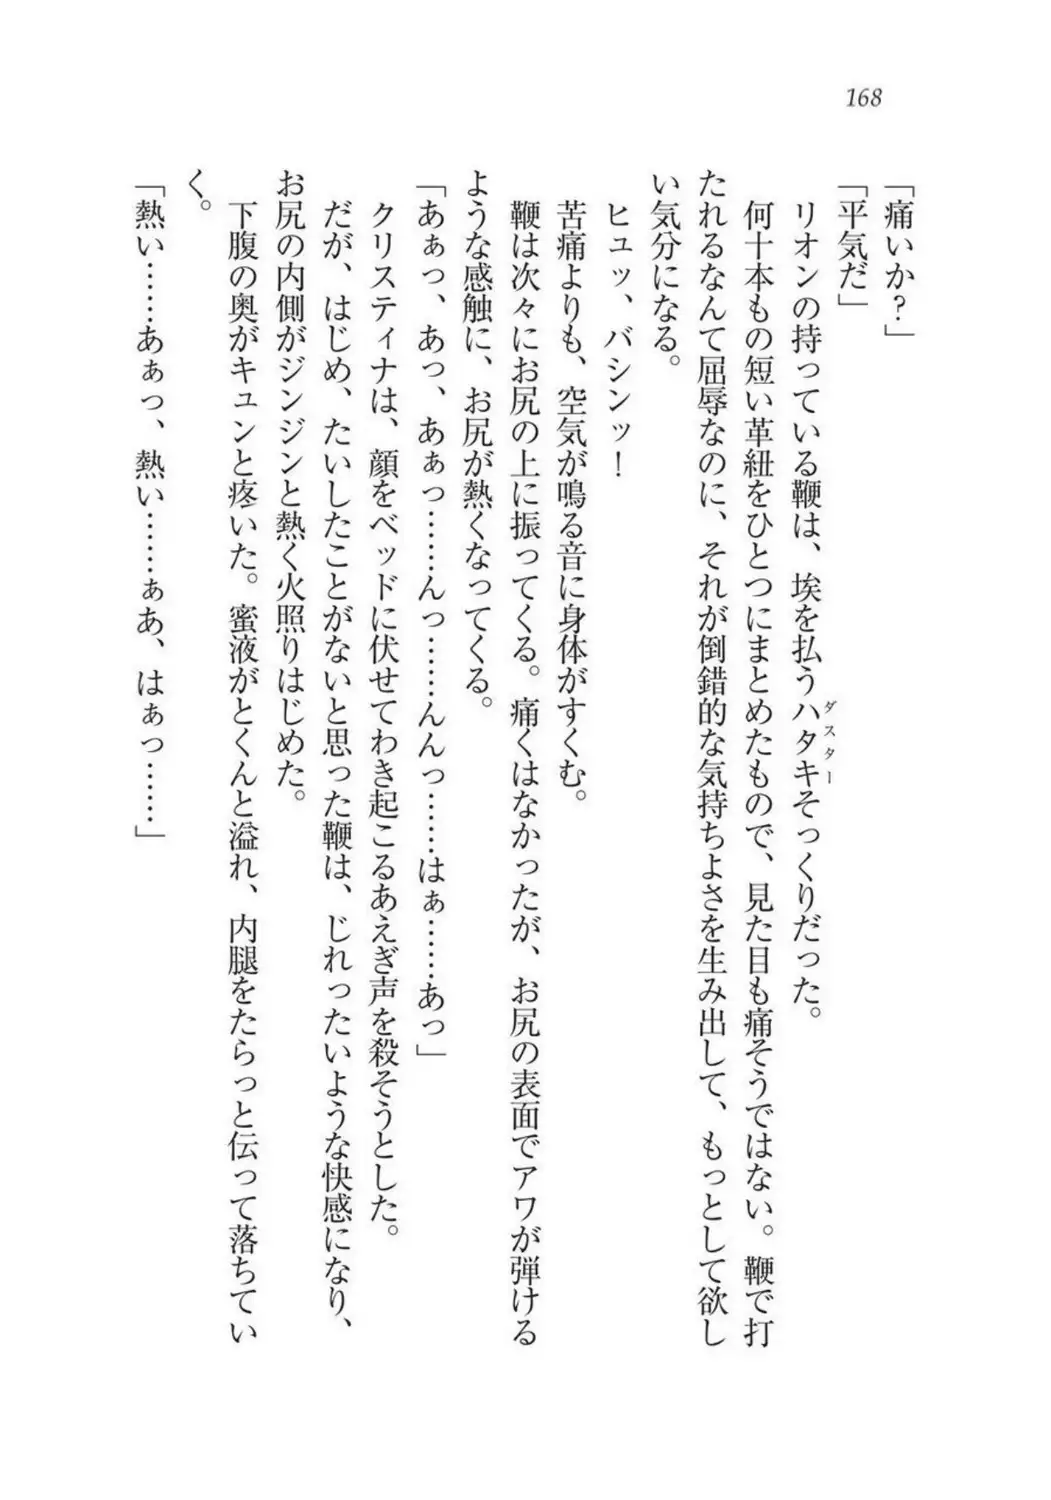 168
「痛いか？」
「平気だ」
　リオンの持っている鞭は、埃を払うハタキそっくりだった。
ダスター
　何十本もの短い革紐をひとつにまとめたもので、見た目も痛そうではない。鞭で打
たれるなんて屈辱なのに、それが倒錯的な気持ちよさを生み出して、もっとして欲し
い気分になる。
　ヒュッ、バシンッ！
　苦痛よりも、空気が鳴る音に身体がすくむ。
　鞭は次々にお尻の上に振ってくる。痛くはなかったが、お尻の表面でアワが弾ける
ような感触に、お尻が熱くなってくる。
「あぁっ、あっ、あぁっ……んっ……んんっ……はぁ……あっ」
　クリスティナは、顔をベッドに伏せてわき起こるあえぎ声を殺そうとした。
　だが、はじめ、たいしたことがないと思った鞭は、じれったいような快感になり、
お尻の内側がジンジンと熱く火照りはじめた。
　下腹の奥がキュンと疼いた。蜜液がとくんと溢れ、内腿をたらっと伝って落ちてい
く。
「熱い……あぁっ、熱い……ぁあ、はぁっ……」